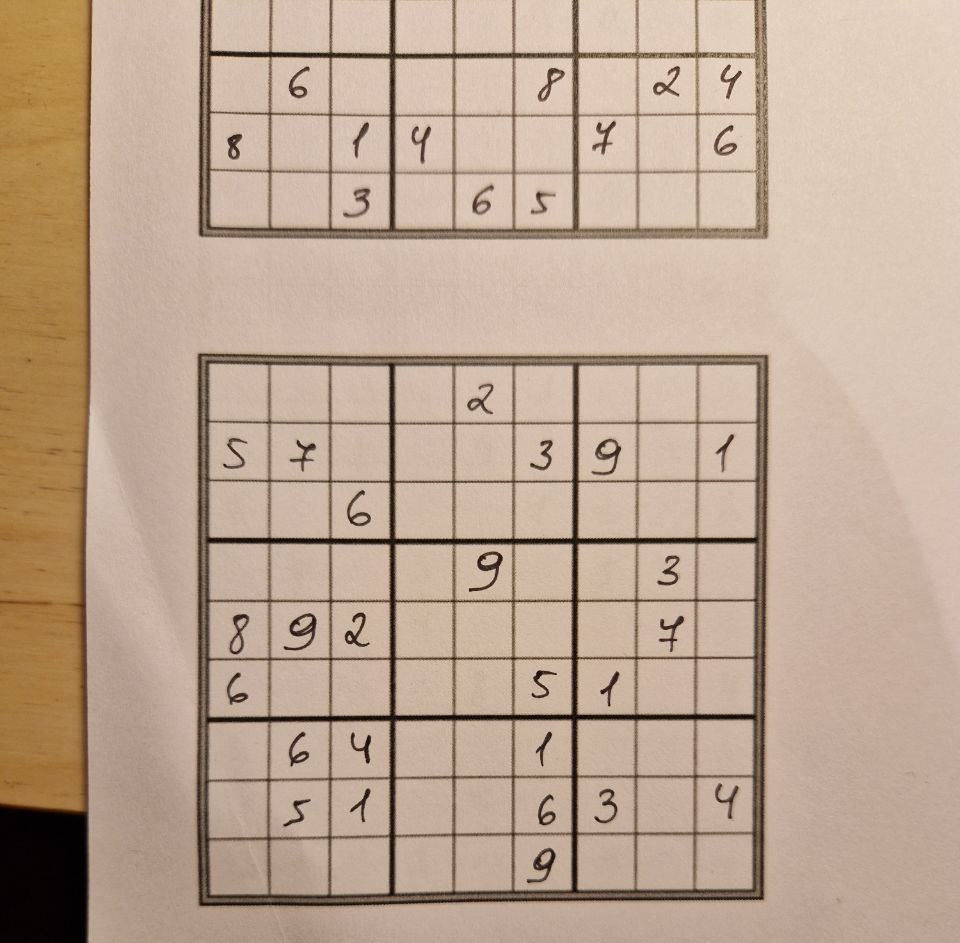 6 8 2 4
8 1 4 7 6
3 6 5
2
5 7 3 9 1
6
9 3
8 9 2 7
6 5 1
6 4 1
5 1 6 3 4
9